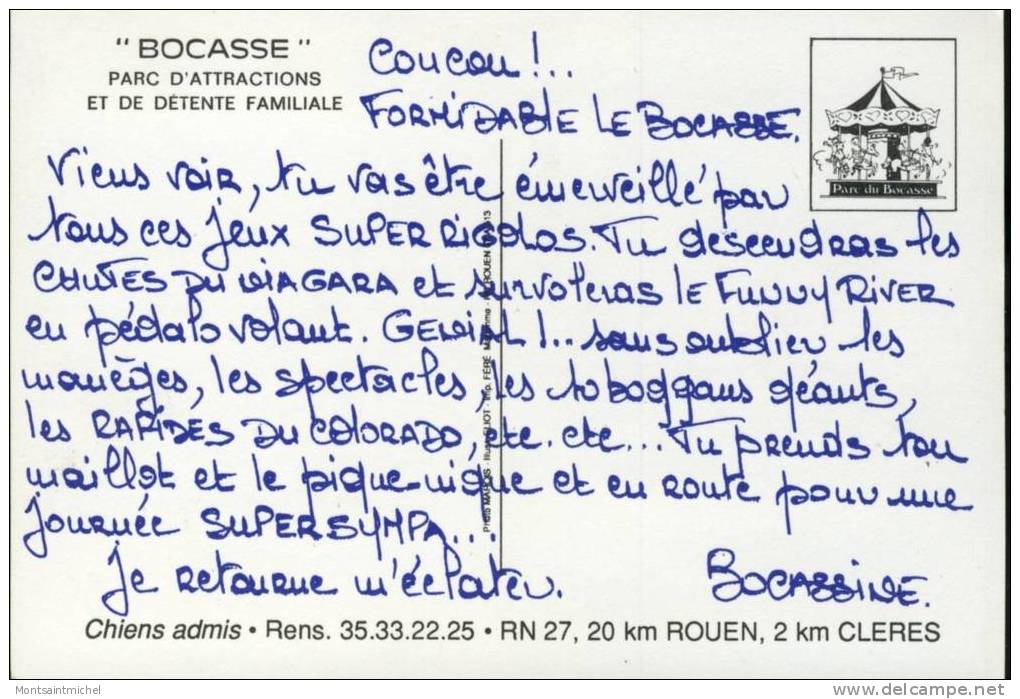 " BOCASSE "
PARC D'ATTRACTIONS
ET DE DÉTENTE FAMILIALE
Coucou !..
FORMIDABLE LE BOCASSE.
Parc du Bocasse
Viens voir, tu vas être émerveillé par
tous ces jeux SUPER RIGOLOS. Tu descendras les
CHUTES DU NIAGARA et survoleras le FUNNY RIVER
en pédalo volant. GENIAL !.. sans oublier les
manèges, les spectacles, les toboggans géants,
les RAPIDES DU COLORADO, etc. etc... Tu prends ton
maillot et le pique-nique et en route pour une
journée SUPER SYMPA...
Je retourne m'éclater.
BOCASSINE.
Chiens admis • Rens. 35.33.22.25 • RN 27, 20 km ROUEN, 2 km CLERES
Montsaintmichel
delcampe.net